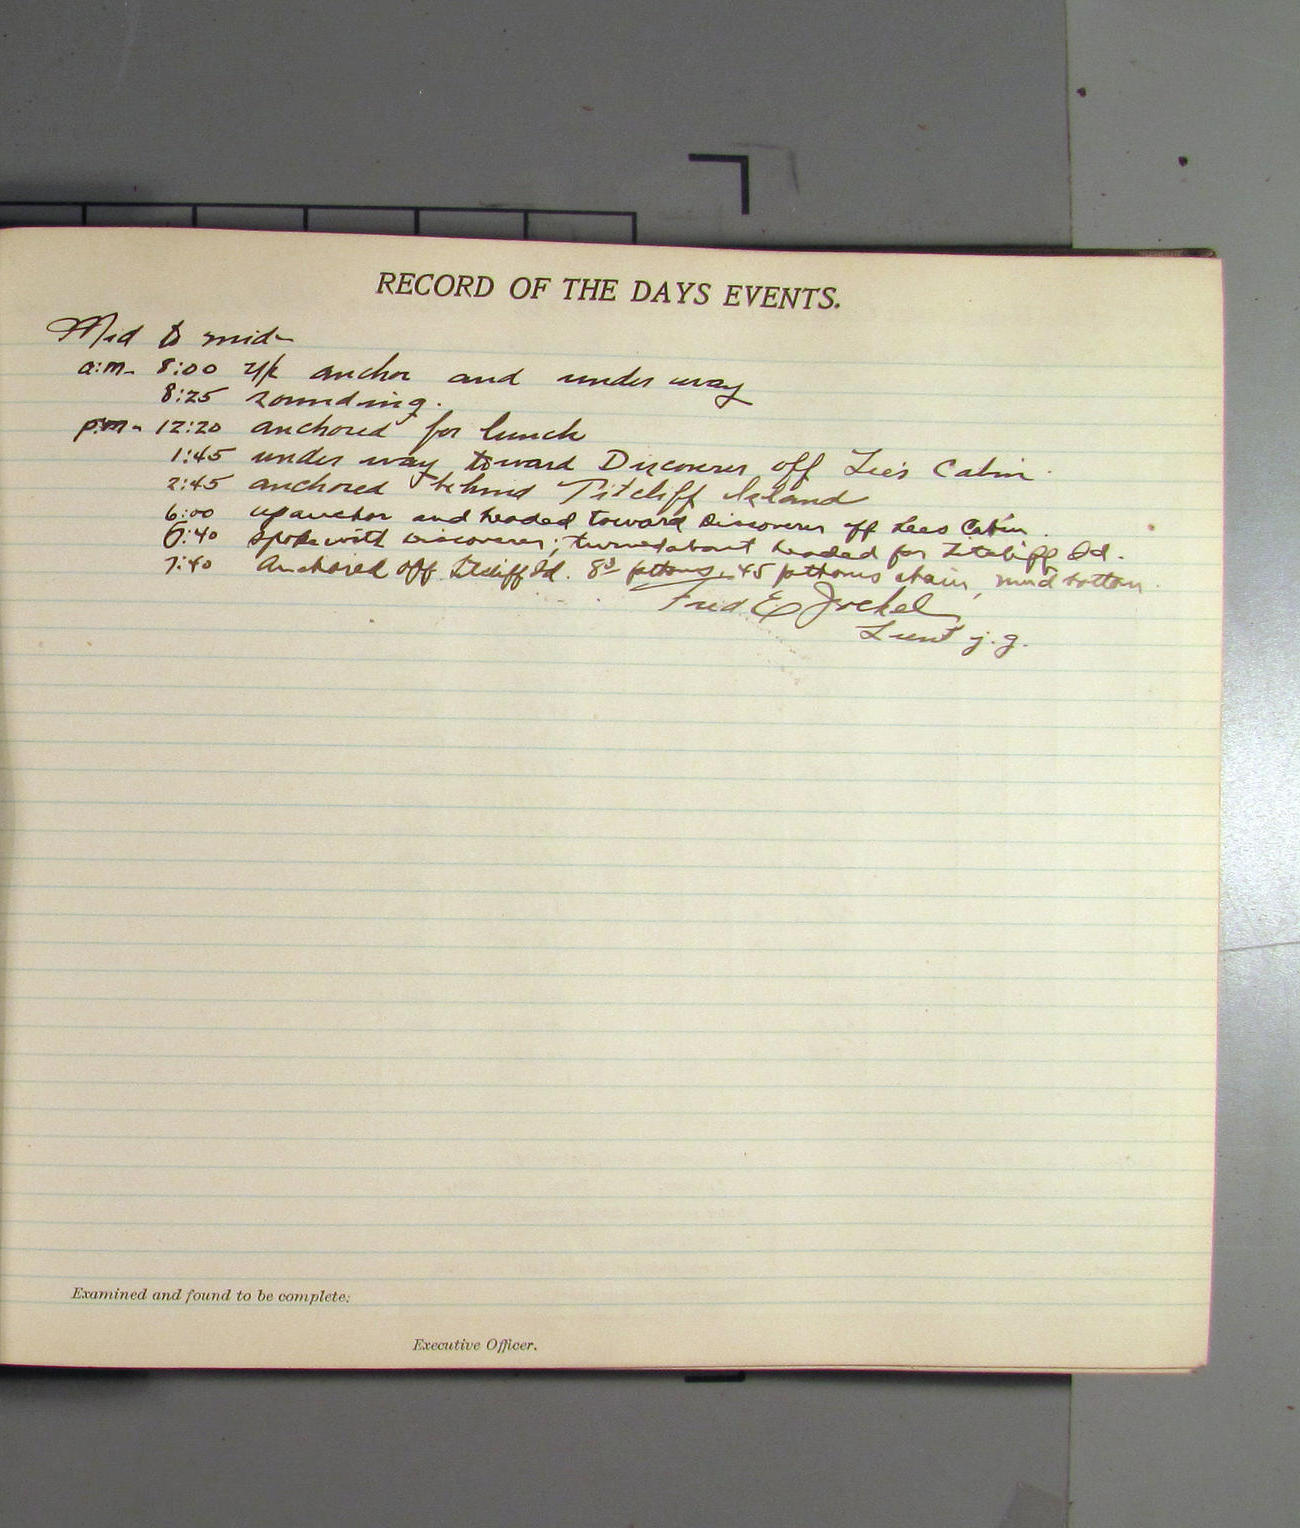 RECORD OF THE DAYS EVENTS.
Mid to mid-
a.m- 8:00 up anchor and under way
8:25 sounding.
p.m- 12:20 anchored for lunch
1:45 under way toward Discoverer off Lee's Cabin.
2:45 anchored behind Island
6:00 up anchor and headed toward Discoverer off Lees Cabin.
6:40 Spoke with Discoverer; turned about headed for Id.
7:40 Anchored off Id. fathoms, 45 fathoms chain, mud bottom.
Fred E. Joekel
Lieut j.g.
Examined and found to be complete:
Executive Officer.